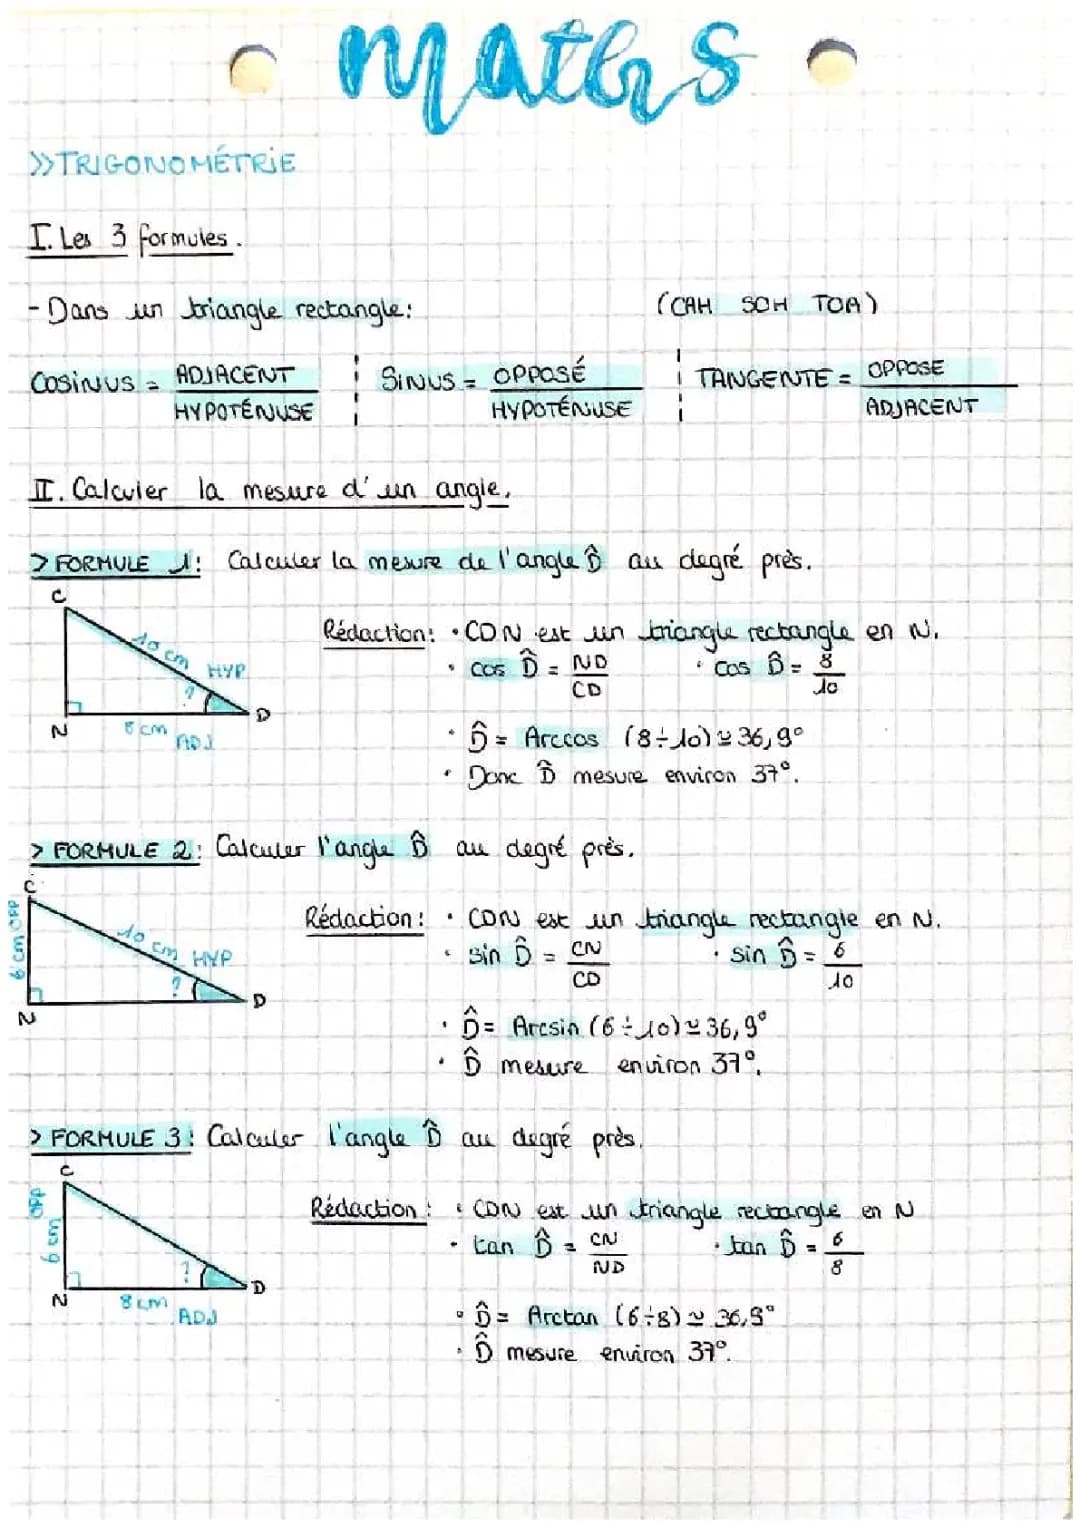 maths
>>TRIGONOMÉTRIE
I. Les 3 formules.
- Dans un triangle rectangle: (CAH SOH TOA)
COSINUS = ADJACENT / HYPOTÉNUSE SINUS = OPPOSÉ / HYPOTÉNUSE TANGENTE = OPPOSE / ADJACENT
II. Calculer la mesure d'un angle.
> FORMULE 1: Calculer la mesure de l'angle D̂ au degré près.
C
10 cm HYP
?
N 8 cm ADJ D
Rédaction: • CDN est un triangle rectangle en N.
• cos D̂ = ND / CD • cos D̂ = 8 / 10
• D̂ = Arccos (8÷10) ≃ 36,9°
• Donc D̂ mesure environ 37°.
> FORMULE 2: Calculer l'angle D̂ au degré près.
C
6 cm OPP
10 cm HYP
?
N D
Rédaction: • CDN est un triangle rectangle en N.
• sin D̂ = CN / CD • sin D̂ = 6 / 10
• D̂ = Arcsin (6÷10) ≃ 36,9°
• D̂ mesure environ 37°.
> FORMULE 3: Calculer l'angle D̂ au degré près.
C
6 cm OPP
?
N 8 cm ADJ D
Rédaction: • CDN est un triangle rectangle en N
• tan D̂ = CN / ND • tan D̂ = 6 / 8
• D̂ = Arctan (6÷8) ≃ 36,9°
• D̂ mesure environ 37°.